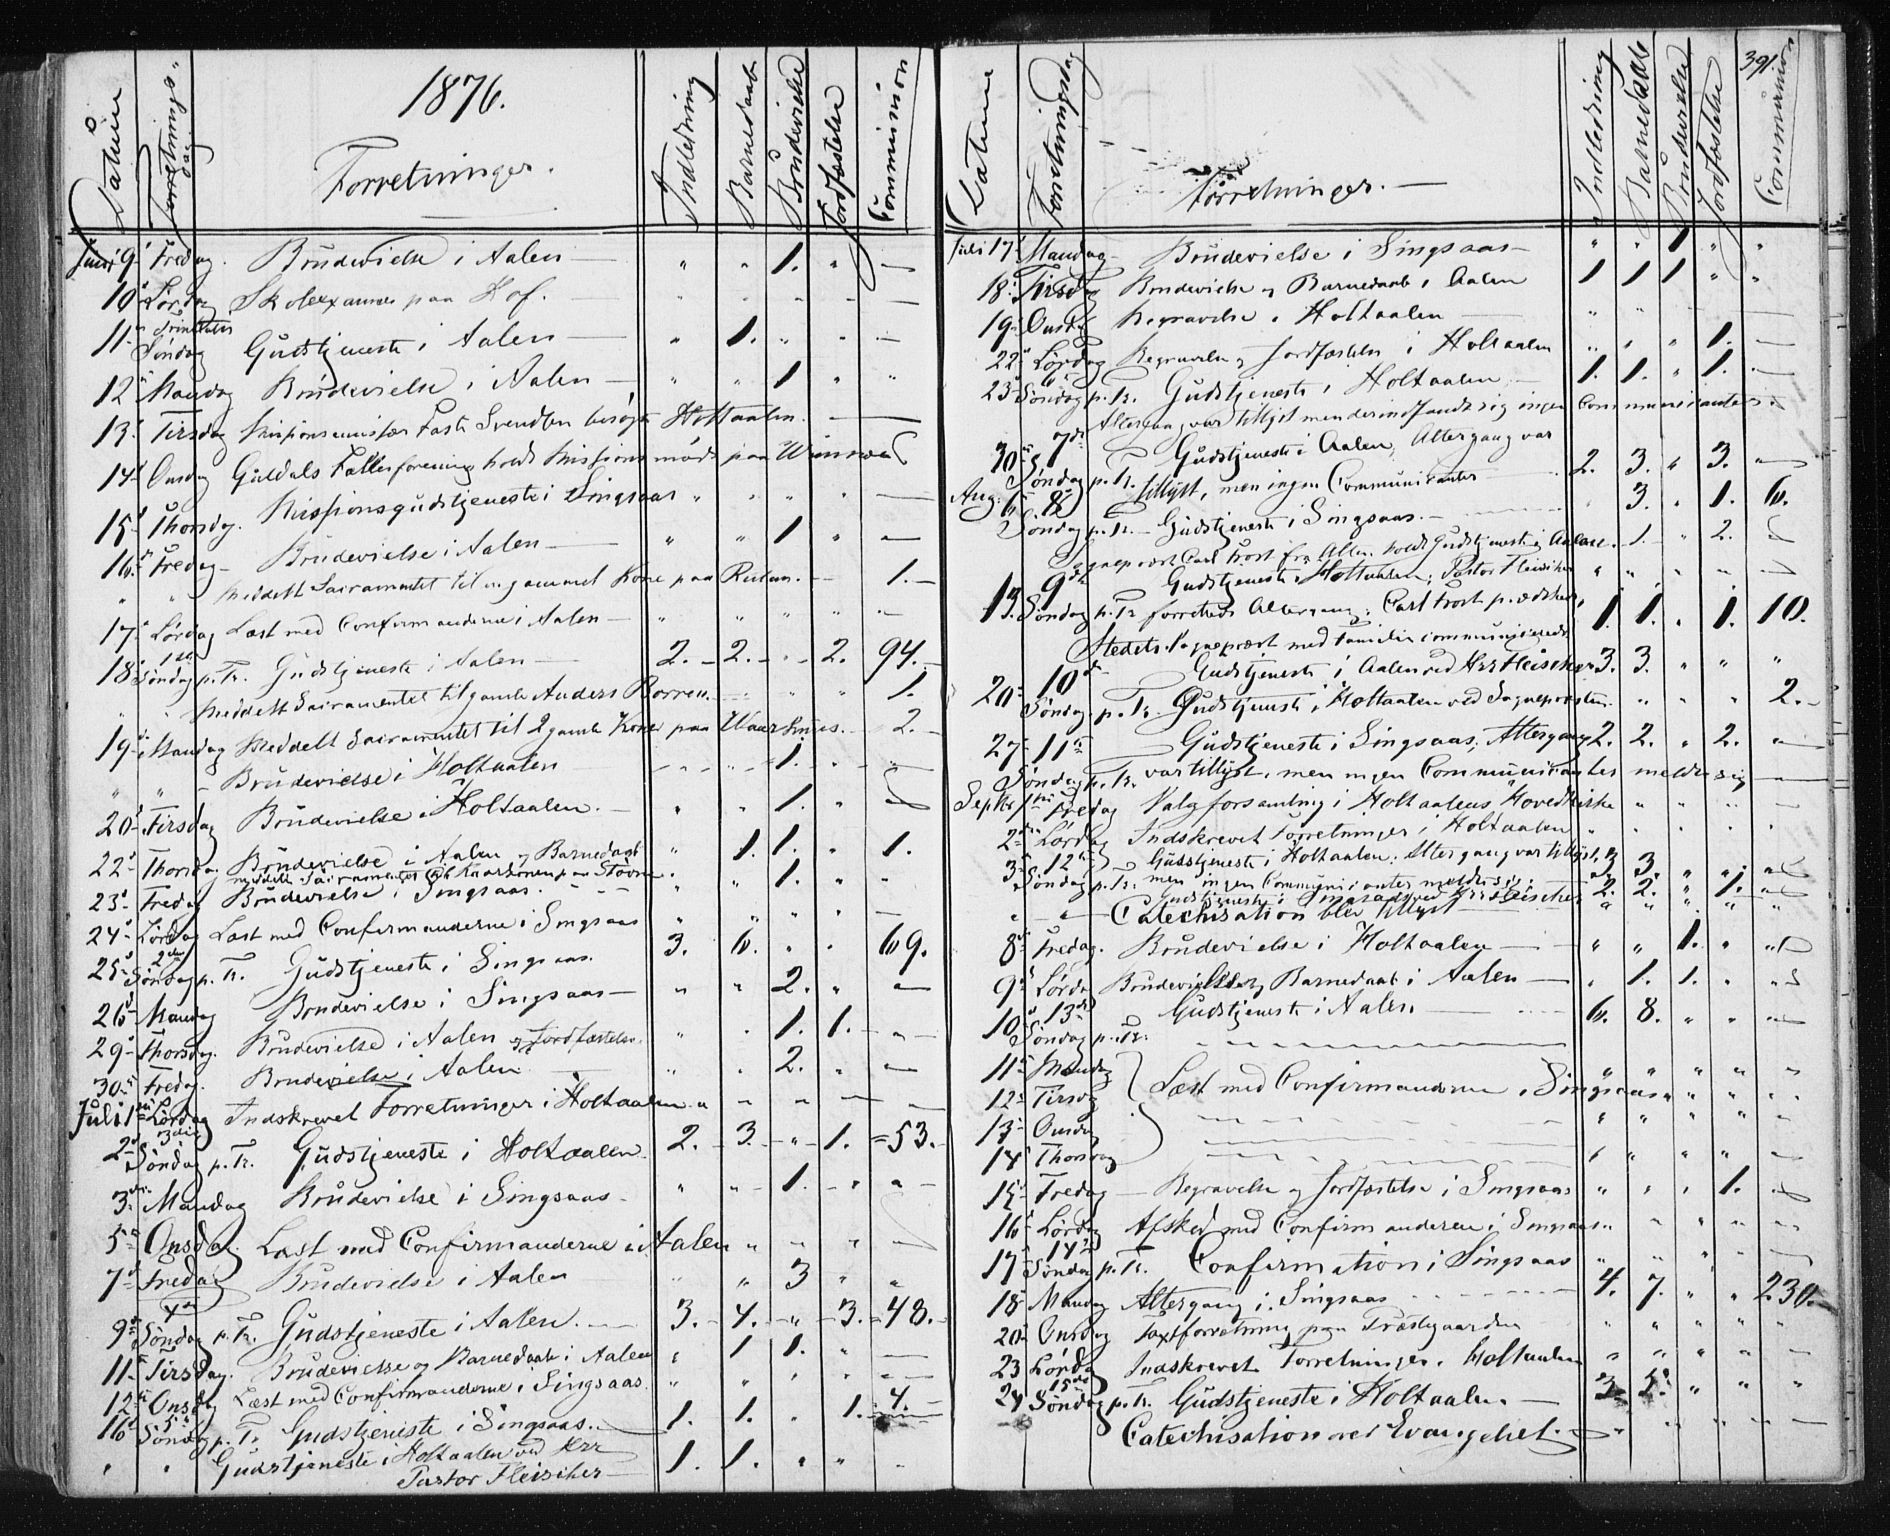 1876.
Datum Forretnings dag Forretninger. Indledning Barnedaab Brudevielse Jordfæstelse Communion
Juni 9 Fredag. Brudevielse i Aalen — " " 1. " —
10 Lørdag Skoleexamen paa Hof. —
Trinitatis
11 Søndag Gudstjeneste i Aalen — " 1. " " —
12 Mandag Brudevielse i Aalen — " " 1 " "
13 Tirsdag Missionsemissær Fast Svendsen besøgte Holtaalen. —
14 Onsdag Guldals Fællesforening holdt Missionsmøde paa
15 Thorsdag. Missionsgudstjeneste i Singsaas " " " " —
16 Fredag Brudevielse i Aalen — " " 1 " —
" " Meddelt Sacramentet til en gammel Kone paa — 1.
17 Lørdag Læst med Confirmanderne i Aalen — " " " " —
1ste
18 Søndag p. Tr. Gudstjeneste i Aalen — 2. 2. " 2. 94.
" " Meddelt Sacramentet til gamle Anders Borren. " " 1.
19 Mandag Meddelt Sacramentet til 2 gamle Koner paa 2.
" " Brudevielse i Holtaalen — 1. "
20 Tirsdag Brudevielse i Holtaalen. — " " 1. "
22 Thorsdag Brudevielse i Aalen og Barnedaab " 1. 1. " 1.
meddelt Sacramentet
23 Fredag Brudevielse i Singsaas. " " 1. "
24 Lørdag Læst med Confirmanderne i Singsaas " " " " —
2den
25 Søndag p. Tr. Gudstjeneste i Singsaas. 3. 6. " " 69.
26 Mandag Brudevielse i Singsaas — " " 2. " —
29 Thorsdag. Brudevielse i Aalen og Jordfæstelse. " " 1. 1. "
30 Fredag. Brudevielse i Aalen " " 2. " —
Juli 1 Lørdag Indskrevet Forretninger i Holtaalen
3die
2 Søndag p. Tr. Gudstjeneste i Holtaalen 2. 3. " 1. 53.
3 Mandag Brudevielse i Singsaas — " " 1. " "
5 Onsdag. Læst med Confirmanderne i Aalen " " " —
7 Fredag Brudevielse i Aalen " " 3 " "
4de
9 Søndag p. Tr. Gudstjeneste i Aalen. 3. 4. " 3. 48.
11 Tirsdag. Brudevielse og Barnedaab i Aalen " 1 1. " —
12 Onsdag Læst med Confirmanderne i Singsaas. " " " " —
5te
16 Søndag p. Tr. Gudstjeneste i Singsaas. 1. 1. " 1. 4.
" " Gudstjeneste i Holtaalen ved Hrr 1. 1. " " "
Pastor Fleischer
391.
Datum Forretningsdag Forretninger. — Indledning Barnedaab Brudevielse Jordfæstelse Communion
Juli 17 Mandag Brudevielse i Singsaas — " " 1 " "
18 Tirsdag Brudevielse og Barnedaab i Aalen 1 1 1 " "
19 Onsdag Begravelse i Holtaalen — " " —
22 Lørdag Begravelse og Jordfæstelse i Holtaalen " " " 1. —
6te
23 Søndag p. Tr. Gudstjeneste i Holtaalen 1. 1. " 1. —
Altergang var tillyst men der indfandt sig ingen Communicanter.
7de
30 Søndag p. Tr. Gudstjeneste i Aalen, Altergang var 2. 3. " 3. —
tillyst, men ingen Communicanter
Aug. 6 8de Søndag p. Tr. Gudstjeneste i Singsaas. — 3. " 1. 6.
Sognepræst Carl Frost fra holdt Gudstjeneste i Aalen. 1. " 2.
9de Gudstjeneste i Holtaalen, Pastor Fleischer " " " " —
13 Søndag p. Tr. forrettede Altergang. Carl Frost prædikede, 1. 1. " 1. 10.
Stedets Sognepræst med Familie communicerede
10de Gudstjeneste i Aalen ved Hrr Fleischer 3. 3. " " "
20 Søndag p. Tr. Gudstjeneste i Holtaalen ved Sognepræsten " " " 2.
27 11te Gudstjeneste i Singsaas. Altergang 2. 2. " 2. "
Søndag p. Tr. var tillyst, men ingen Communicanter meldte sig —
Septbr 1 Fredag Valgforsamling i Holtaalens Hovedkirke " " " " —
2 Lørdag Indskrevet Forretninger i Holtaalen " " " " "
3 12te Gudstjeneste i Holtaalen. Altergang var tillyst, 3. 3. " "
Søndag p. Tr. men ingen Communicanter meldte sig.
Gudstjeneste i Singsaas ved Hrr Fleischer 2. 2. " 1. "
" " Catechisation blev tillyst — " " " " "
8 Fredag. Brudevielse i Holtaalen — " " 1. " "
9 Lørdag Brudevielse og Barnedaab i Aalen — " 1. 1. " "
13de
10 Søndag p. Tr. Gudstjeneste i Aalen. — 6. 8. " " "
11 Mandag " " " " "
12 Tirsdag Læst med Confirmanderne i Singsaas " " " "
13 Onsdag " " " " —
14 Thorsdag " " " " —
15 Fredag — Begravelse og Jordfæstelse i Singsaas " " " 1.
16 Lørdag Afsked med Confirmanderne i Singsaas " " " "
14de
17 Søndag p. Tr. Confirmation i Singsaas " " " " —
18 Mandag Altergang i Singsaas 4. 7. " " 230.
20 Onsdag Taxtforretning paa Præstegaarden " " " "
23 Lørdag Indskrevet Forretninger. Holtaalen " " " " —
15de
24 Søndag p. Tr. Gudstjeneste i Holtaalen. — 3. 5. " " "
Catechisation over Evangeliet. —